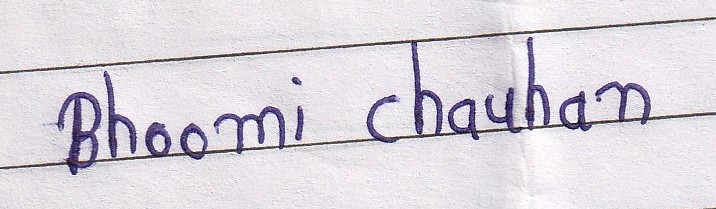 Bhoomi chauhan